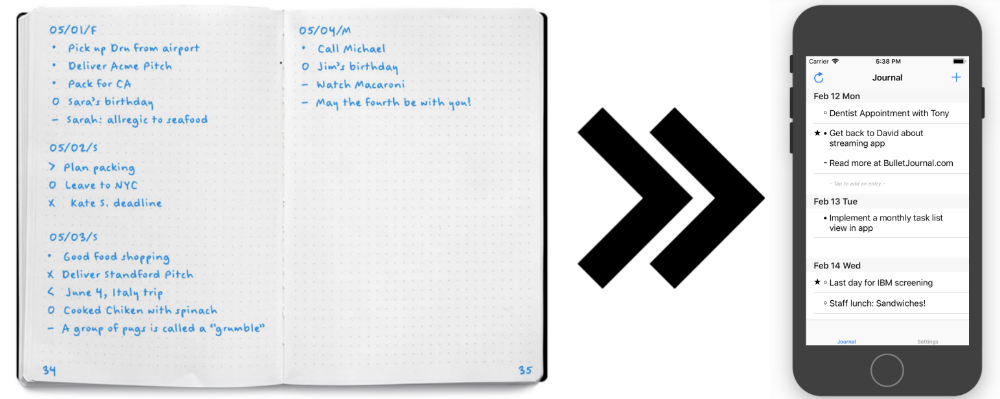 05/01/F
• Pick up Dru from airport
• Deliver Acme Pitch
• Pack for CA
O Sara's birthday
– Sarah: allregic to seafood
05/02/S
> Plan packing
O Leave to NYC
x Kate S. deadline
05/03/S
• Good food shopping
x Deliver Standford Pitch
< June 4, Italy trip
O Cooked Chiken with spinach
– A group of pugs is called a "grumble"
34
05/04/M
• Call Michael
O Jim's birthday
– Watch Macaroni
– May the fourth be with you!
35
Carrier 5:38 PM
Journal
Feb 12 Mon
○ Dentist Appointment with Tony
★ • Get back to David about
streaming app
- Read more at BulletJournal.com
- Tap to add an entry -
Feb 13 Tue
• Implement a monthly task list
view in app
Feb 14 Wed
★ ○ Last day for IBM screening
○ Staff lunch: Sandwiches!
Journal Settings